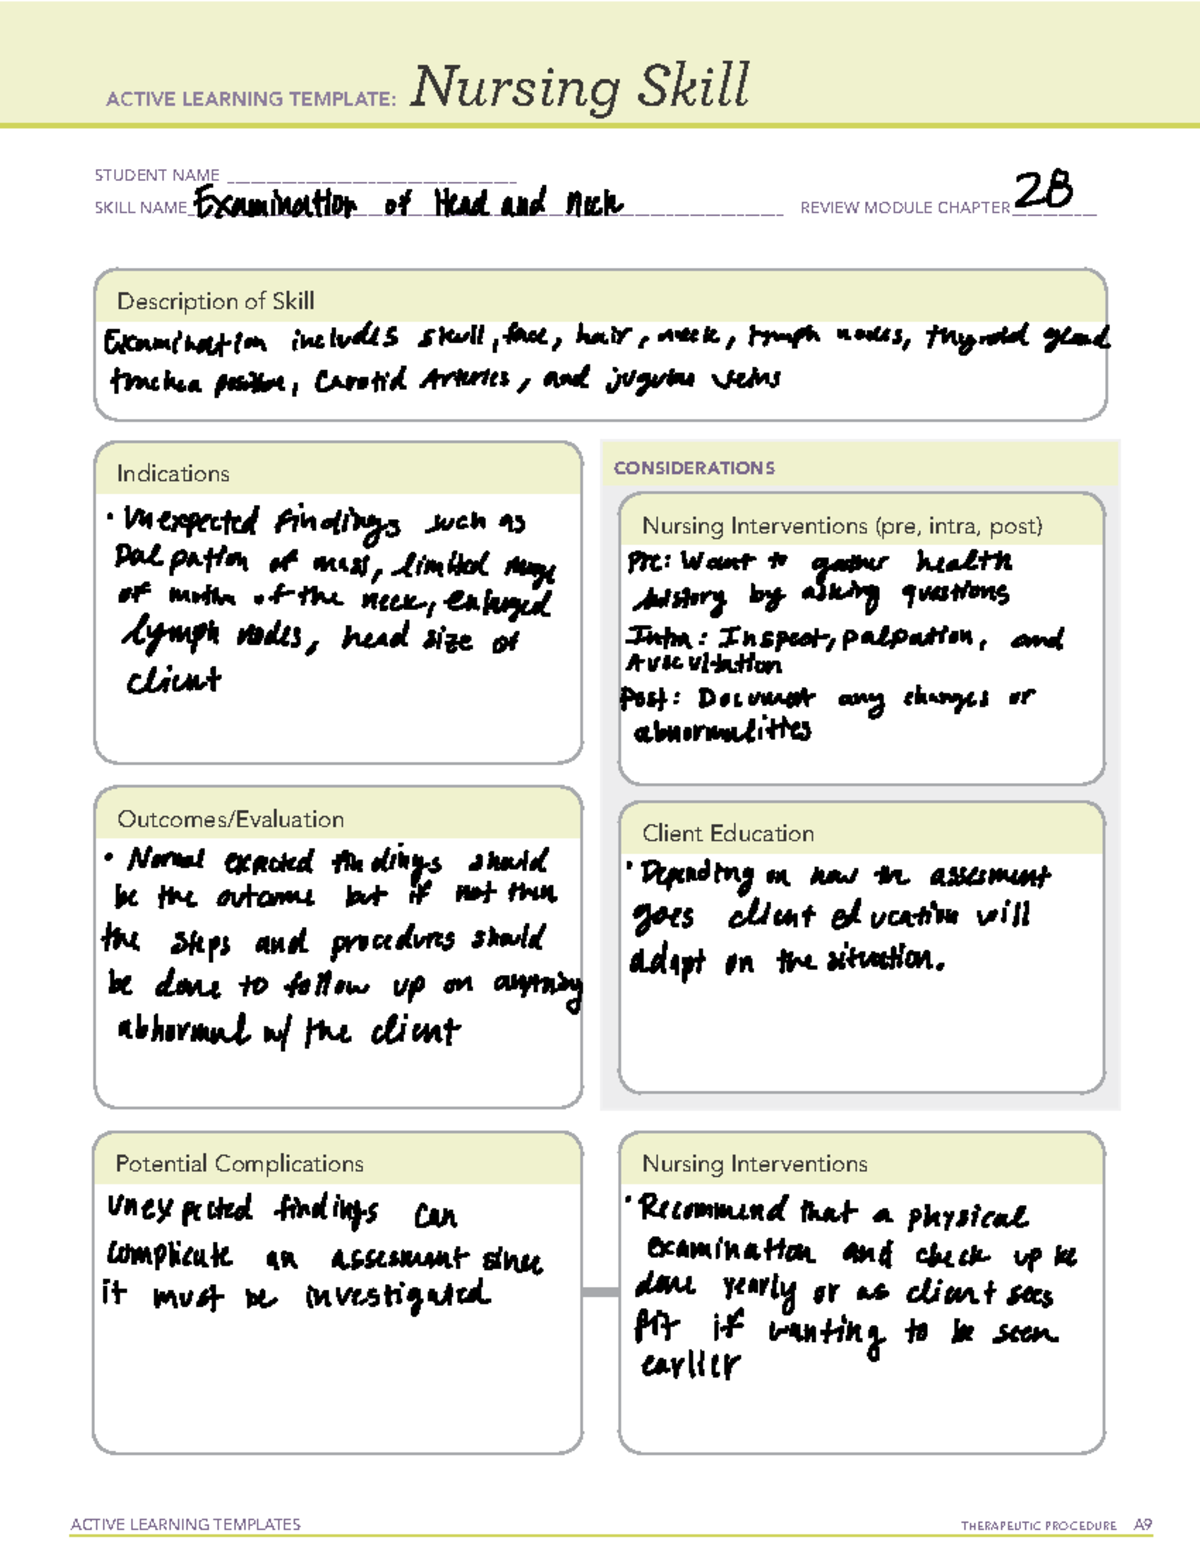 ACTIVE LEARNING TEMPLATE: Nursing Skill
STUDENT NAME
SKILL NAME Examination of Head and Neck REVIEW MODULE CHAPTER 28
Description of Skill
Examination includes skull, face, hair, neck, lymph nodes, thyroid gland
trachea position, Carotid Arteries, and jugular veins
Indications
• Unexpected findings such as
Palpation of mass, limited range
of motion of the neck, enlarged
lymph nodes, head size of
client
CONSIDERATIONS
Nursing Interventions (pre, intra, post)
Pre: Want to gather health
history by asking questions
Intra: Inspect, palpation, and
Auscultation
Post: Document any changes or
abnormalities
Outcomes/Evaluation
• Normal expected findings should
be the outcome but if not then
the steps and procedures should
be done to follow up on anything
abnormal w/ the client
Client Education
• Depending on how the assesment
goes client education will
adapt on the situation.
Potential Complications
Unexpected findings can
complicate an assesment since
it must be investigated
Nursing Interventions
• Recommend that a physical
examination and check up be
done yearly or as client sees
fit if wanting to be seen
earlier
ACTIVE LEARNING TEMPLATES
THERAPEUTIC PROCEDURE A9